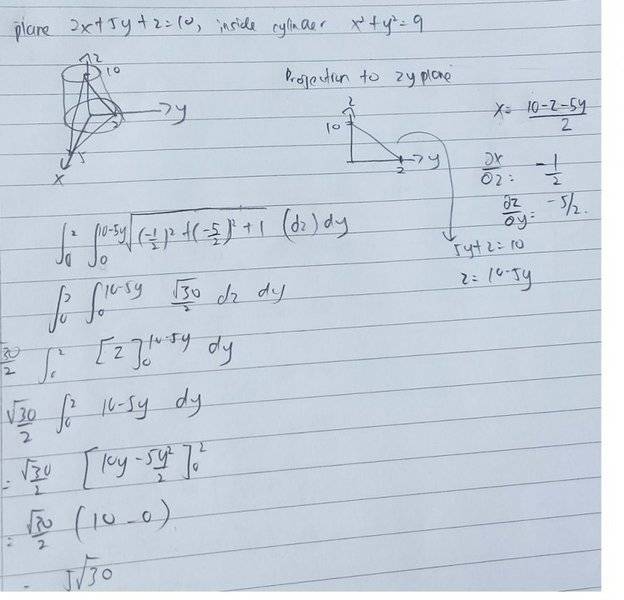 plane 2x+5y+z=10, inside cylinder x²+y²=9
z
10
y
5
x
Projection to zy plane
z
10
y
2
x= (10-z-5y)/2
∂x/∂z = -1/2
∂z/∂y = -5/2.
5y+z=10
z=10-5y
∫₀² ∫₀^(10-5y) √((-1/2)²+(-5/2)²+1) (dz) dy
∫₀² ∫₀^(10-5y) √30/2 dz dy
√30/2 ∫₀² [z]₀^(10-5y) dy
√30/2 ∫₀² 10-5y dy
= √30/2 [10y-5y²/2]₀²
= √30/2 (10-0)
= 5√30